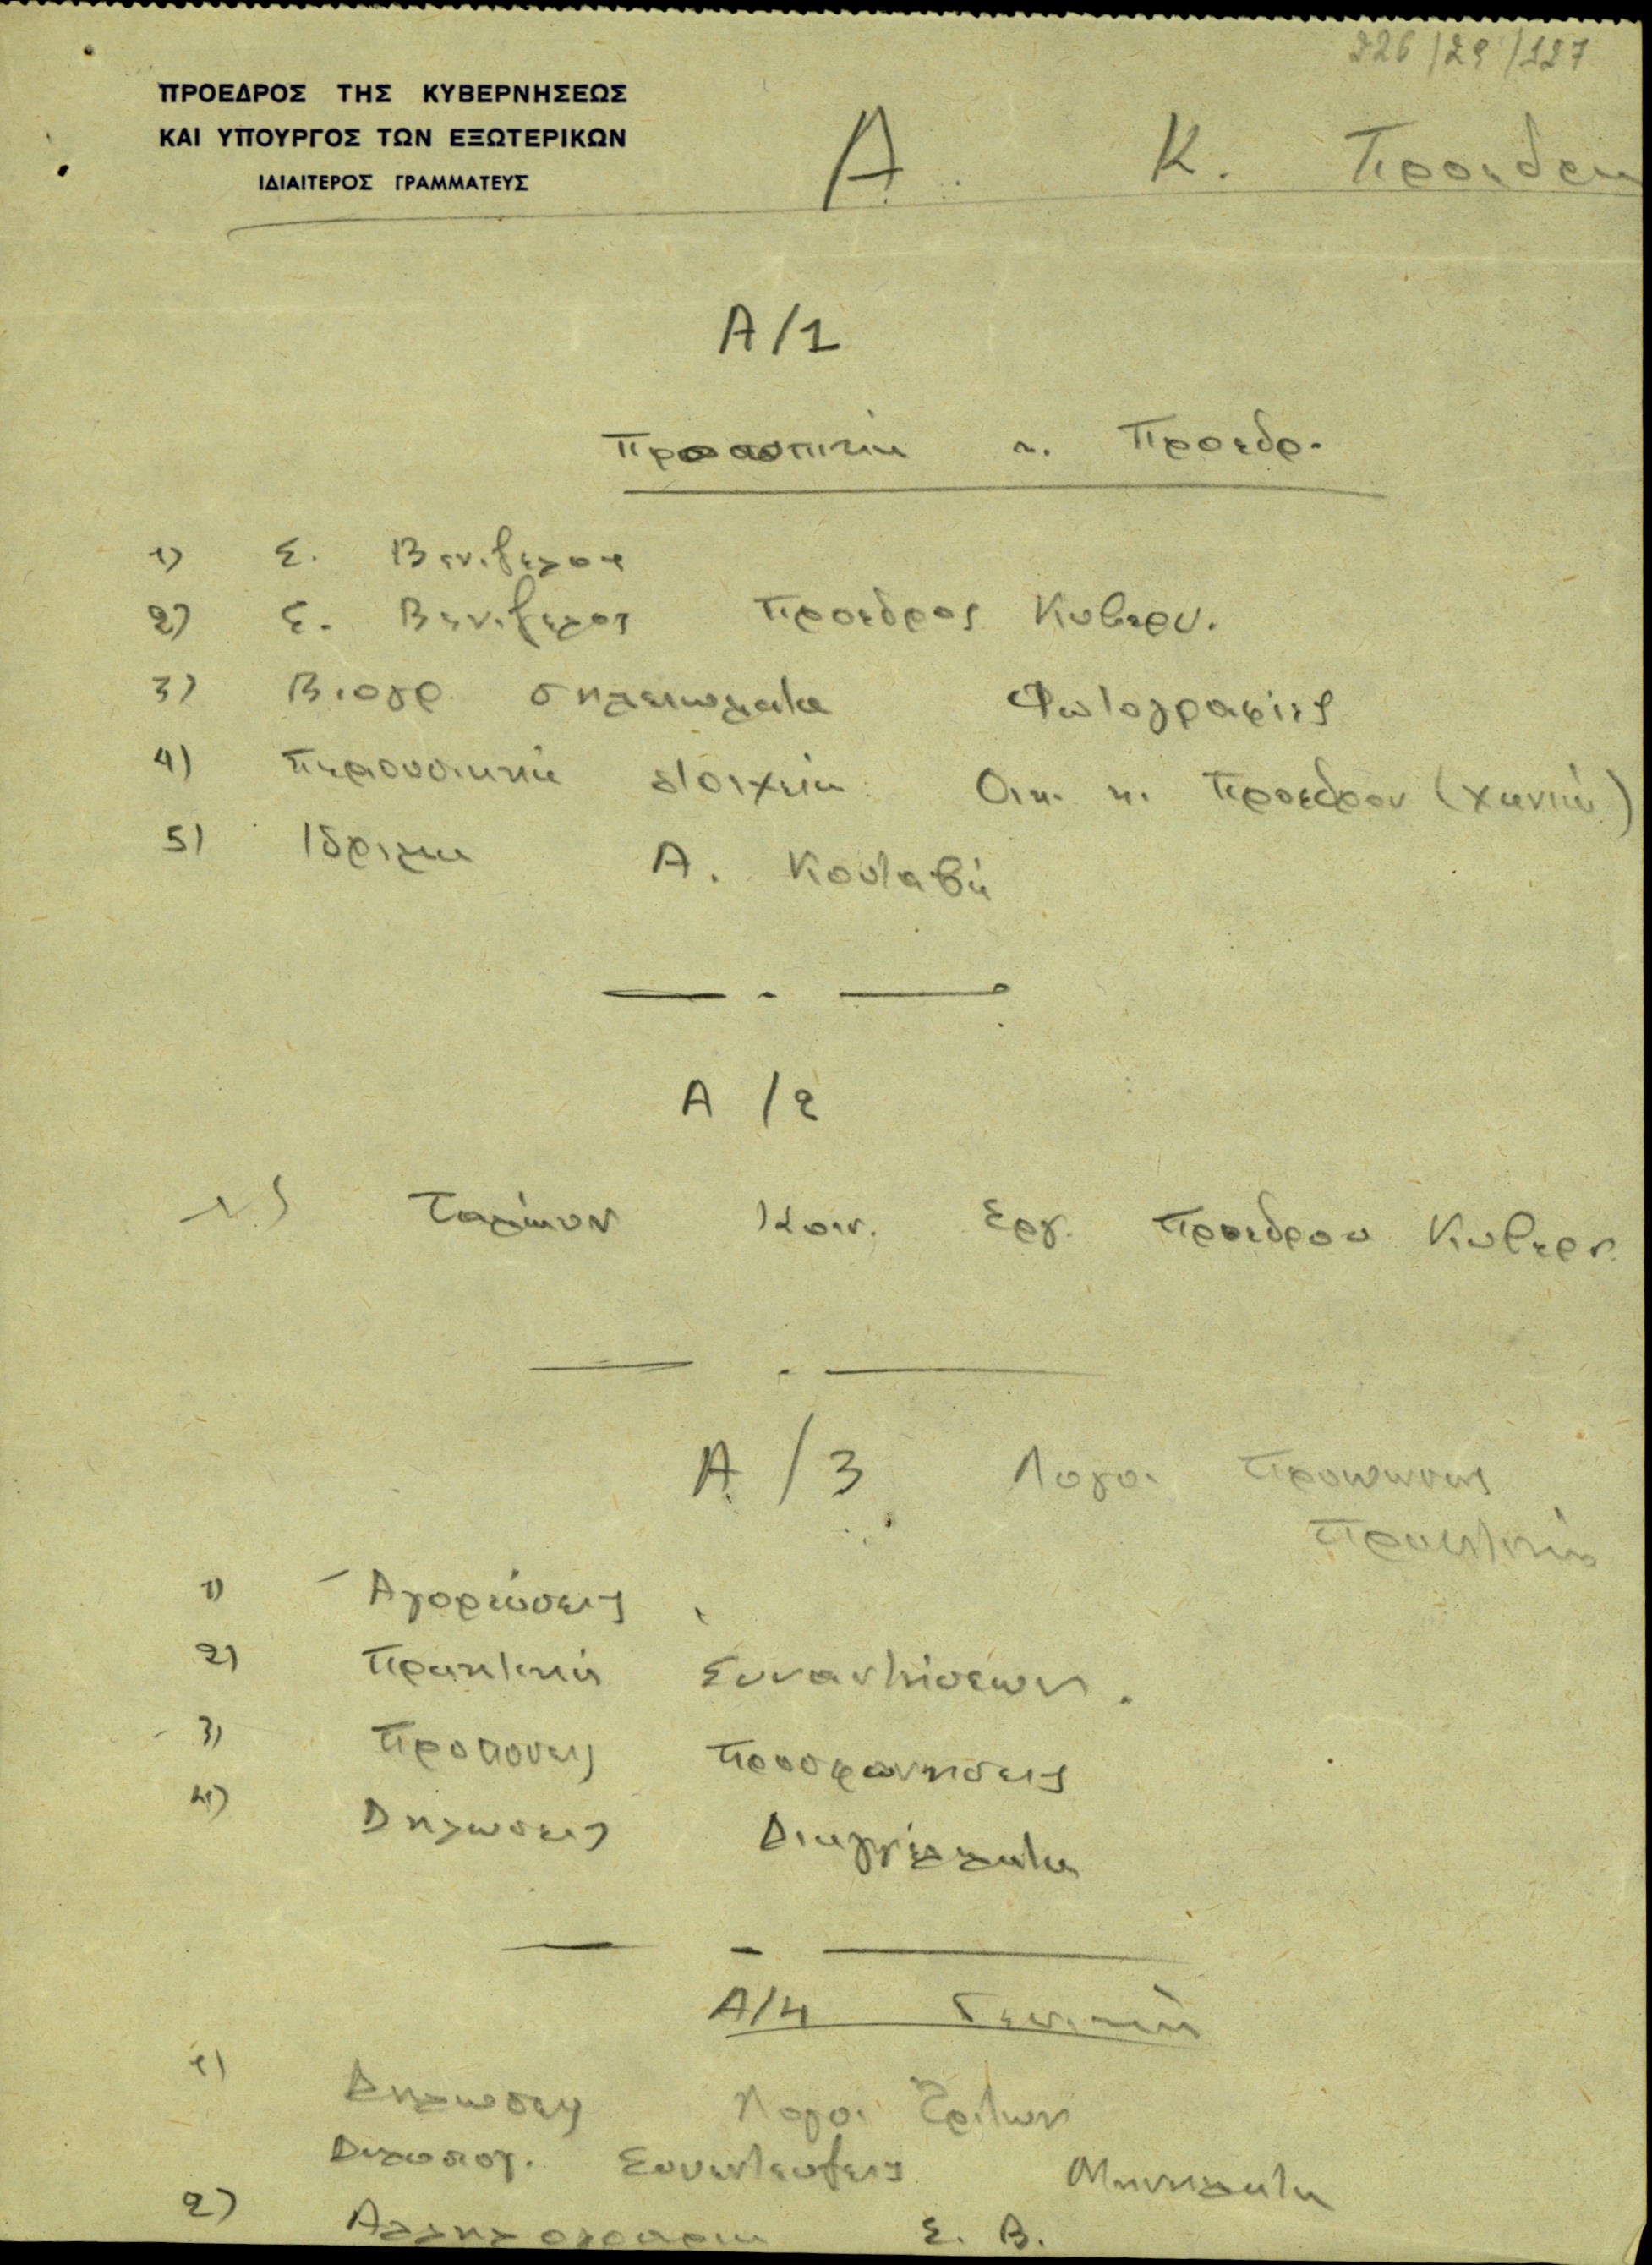 226/29/127
ΠΡΟΕΔΡΟΣ ΤΗΣ ΚΥΒΕΡΝΗΣΕΩΣ
ΚΑΙ ΥΠΟΥΡΓΟΣ ΤΩΝ ΕΞΩΤΕΡΙΚΩΝ
ΙΔΙΑΙΤΕΡΟΣ ΓΡΑΜΜΑΤΕΥΣ
Α. Κ.
Α/1
Προσωπικά κ. Προεδρ.
1) Σ. Βενιζελος
2) Σ. Βενιζελος Προεδρος Κυβερν.
3) Βιογρ. σημειωματα Φωτογραφίες
4) Περιουσιακά στοιχεία Οικ. κ. Προεδρου (Χανιά)
5) Ιδρυμα Α.
Α/2
Κοιν. Εργ. Προεδρου Κυβερν.
Α/3 Λογοι Προπόσεις
Πρακτικά
1) Αγορεύσεις
2) Πρακτικά Συναντήσεων.
3) Προποσεις Προσφωνησεις
4) Δηλωσεις Διαγγέλματα
Α/4 Γενικά
1) Δηλωσεις Λογοι Τρίτων
Δημοσιογ. Συνεντευξεις Μηνυματα
2) Αλληλογραφια Σ. Β.